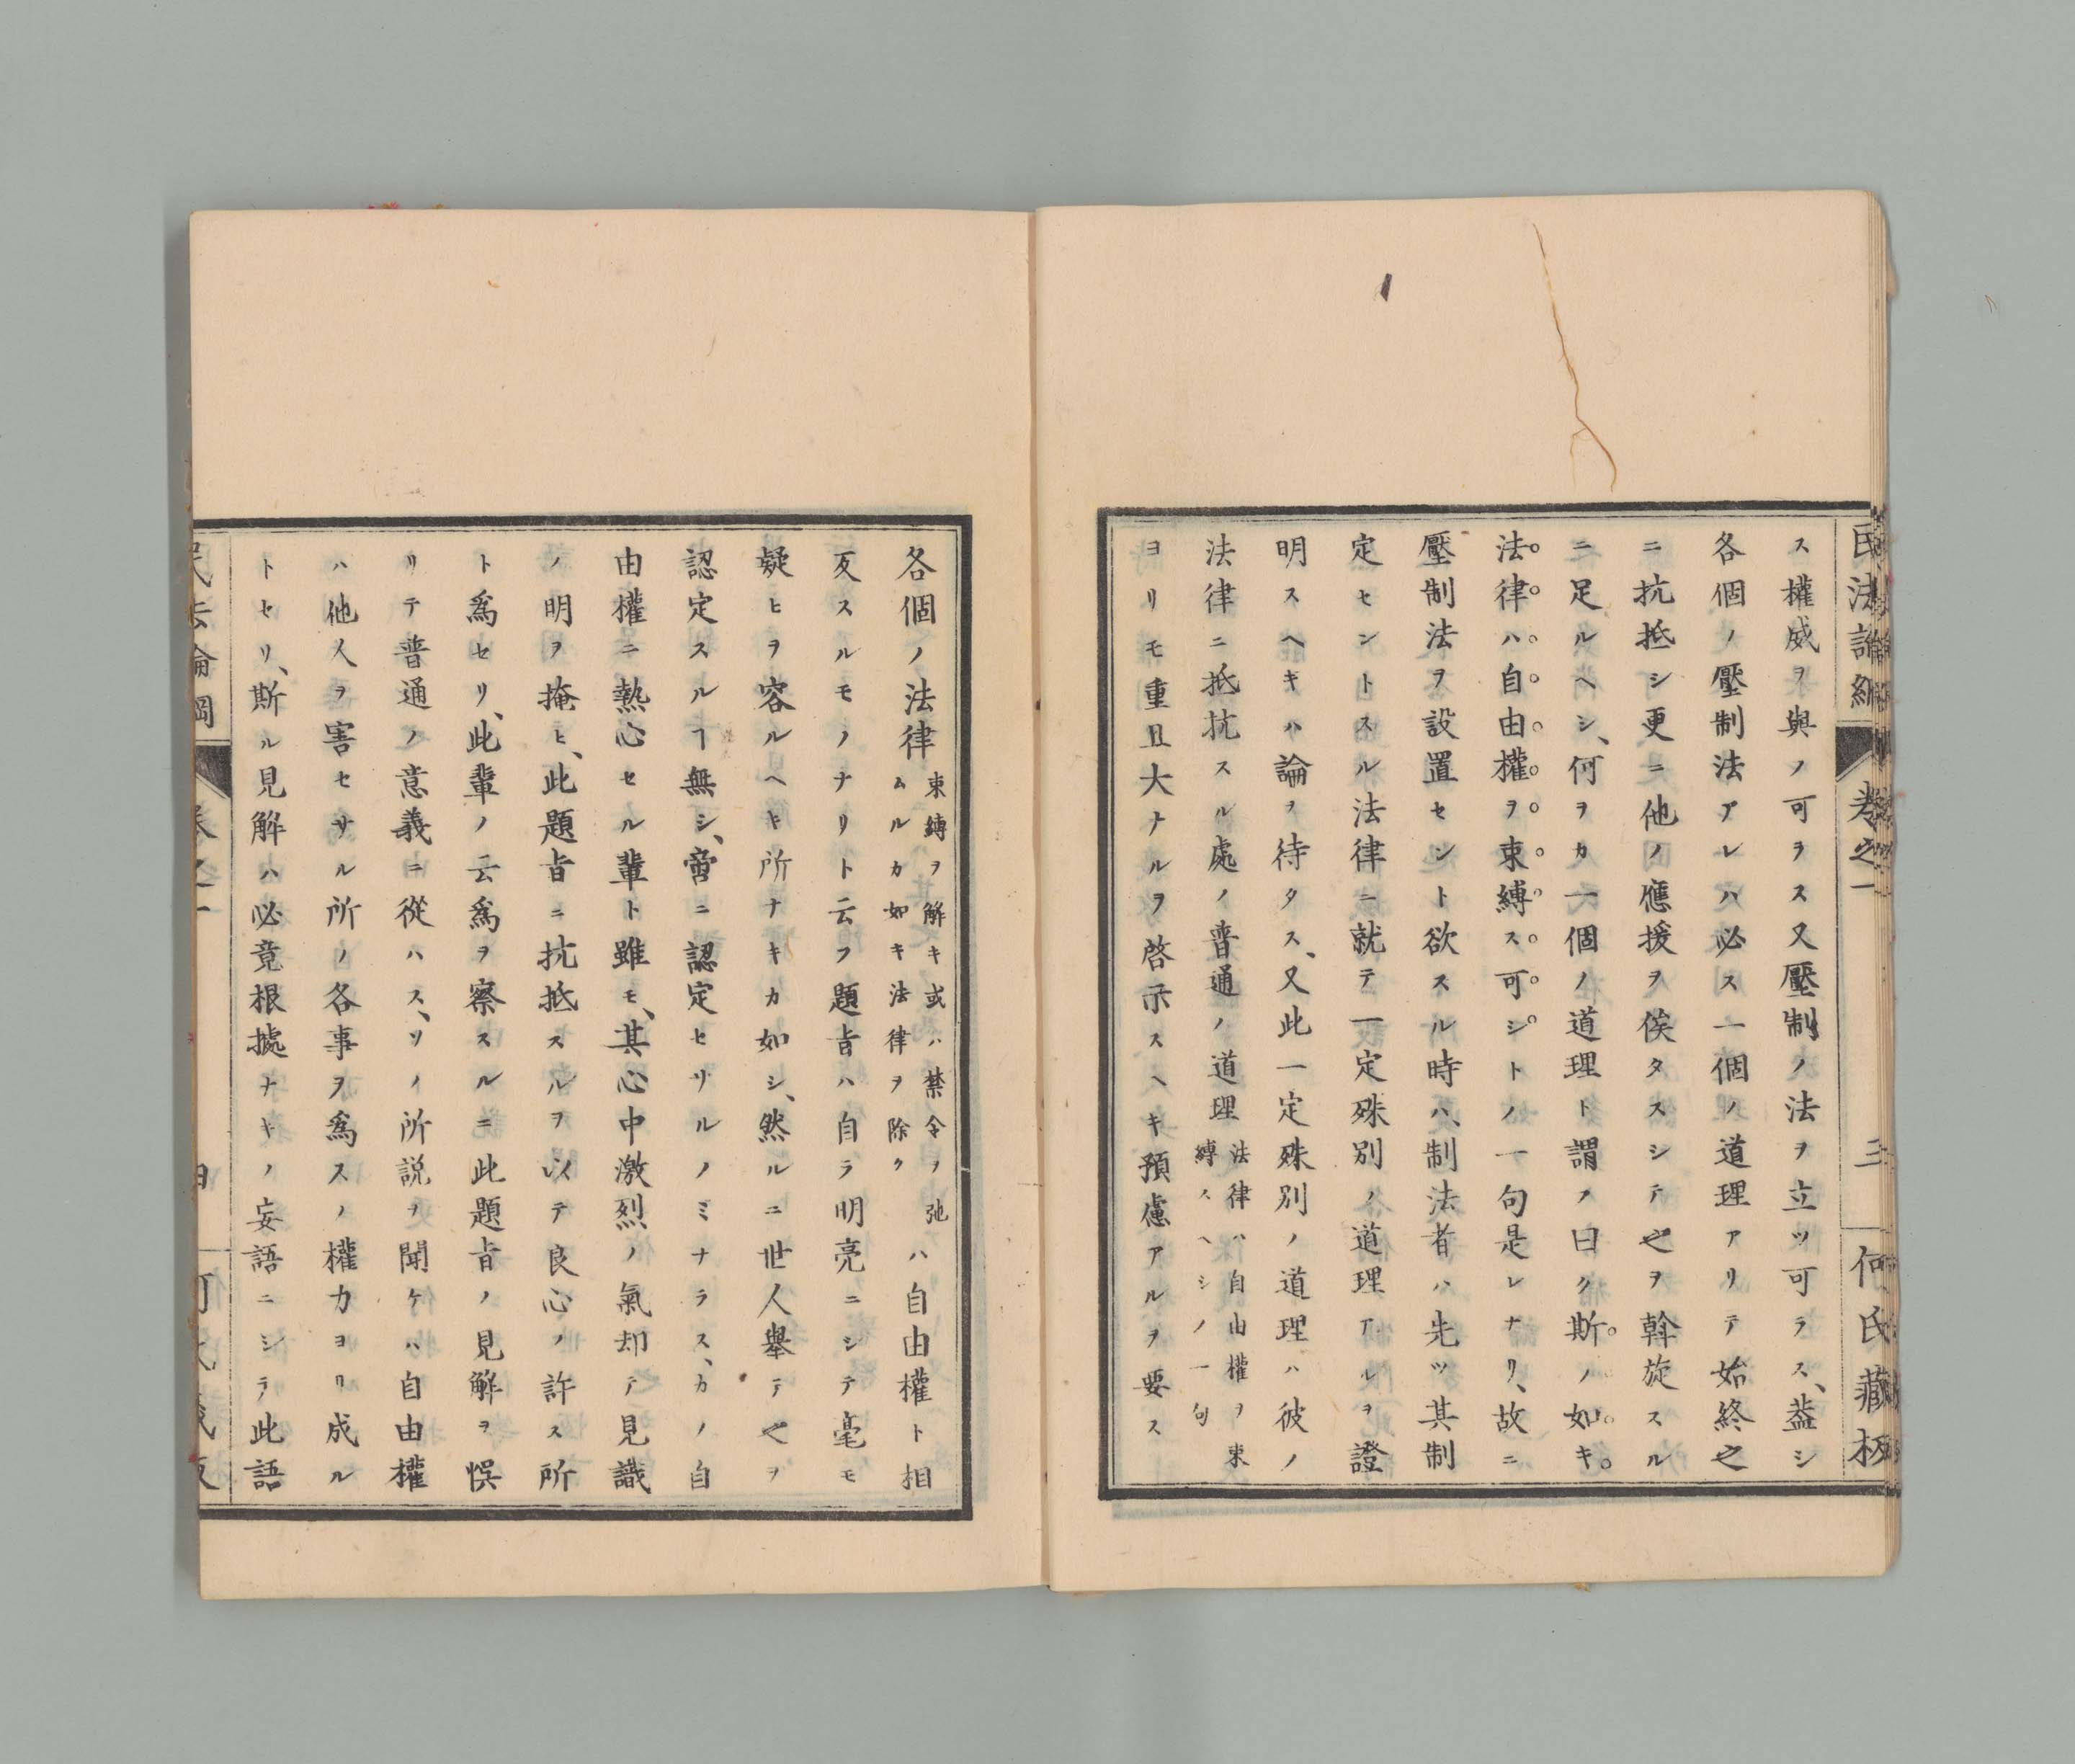 民法論綱 卷之一 三 何氏藏板
ス權威ヲ與ノ可ヲス又壓制ノ法ヲ立ツ可ラス、蓋シ
各個ノ壓制法アレハ必ス一個ノ道理アリテ始終之
ニ抗抵シ更ニ他ノ應援ヲ俟タスシテ之ヲ斡旋スル
ニ足ルヘシ、何ヲカ一個ノ道理ト謂フ曰ク斯ノ如キ
法律ハ自由權ヲ束縛ス可シトノ一句是レナリ、故ニ
壓制法ヲ設置セント欲スル時ハ、制法者ハ先ツ其制
定セントスル法律ニ就テ一定殊別ノ道理アルヲ證
明スヘキハ論ヲ待タス、又此一定殊別ノ道理ハ彼ノ
法律ニ抵抗スル處ノ普通ノ道理法律ハ自由權ヲ束縛スヘシノ一句
ヨリモ重且大ナルヲ啓示スヘキ預慮アルヲ要ス
各個ノ法律束縛ヲ解キ或ハ禁令ヲ弛ムルカ如キ法律ヲ除クハ自由權ト相
反スルモノナリト云フ題旨ハ自ラ明亮ニシテ毫モ
疑ヒヲ容ルヘキ所ナキカ如シ、然ルニ世人舉テ之ヲ
認定スルヿ無シ、啻ニ認定セサルノミナラス、カノ自
由權ニ熱心セル輩ト雖モ、其心中激烈ノ氣却テ見識
ノ明ヲ掩ヒ、此題旨ニ抗抵スルヲ以テ良心ノ許ス所
ト爲セリ、此輩ノ云爲ヲ察スルニ此題旨ノ見解ヲ悞
リテ普通ノ意義ニ從ハス、ソノ所説ヲ聞ケハ自由權
ハ他人ヲ害セサル所ノ各事ヲ爲スノ權力ヨリ成ル
トセリ、斯ル見解ハ必竟根據ナキノ妄語ニシテ此語
民法論綱 卷之一 四 何氏藏板